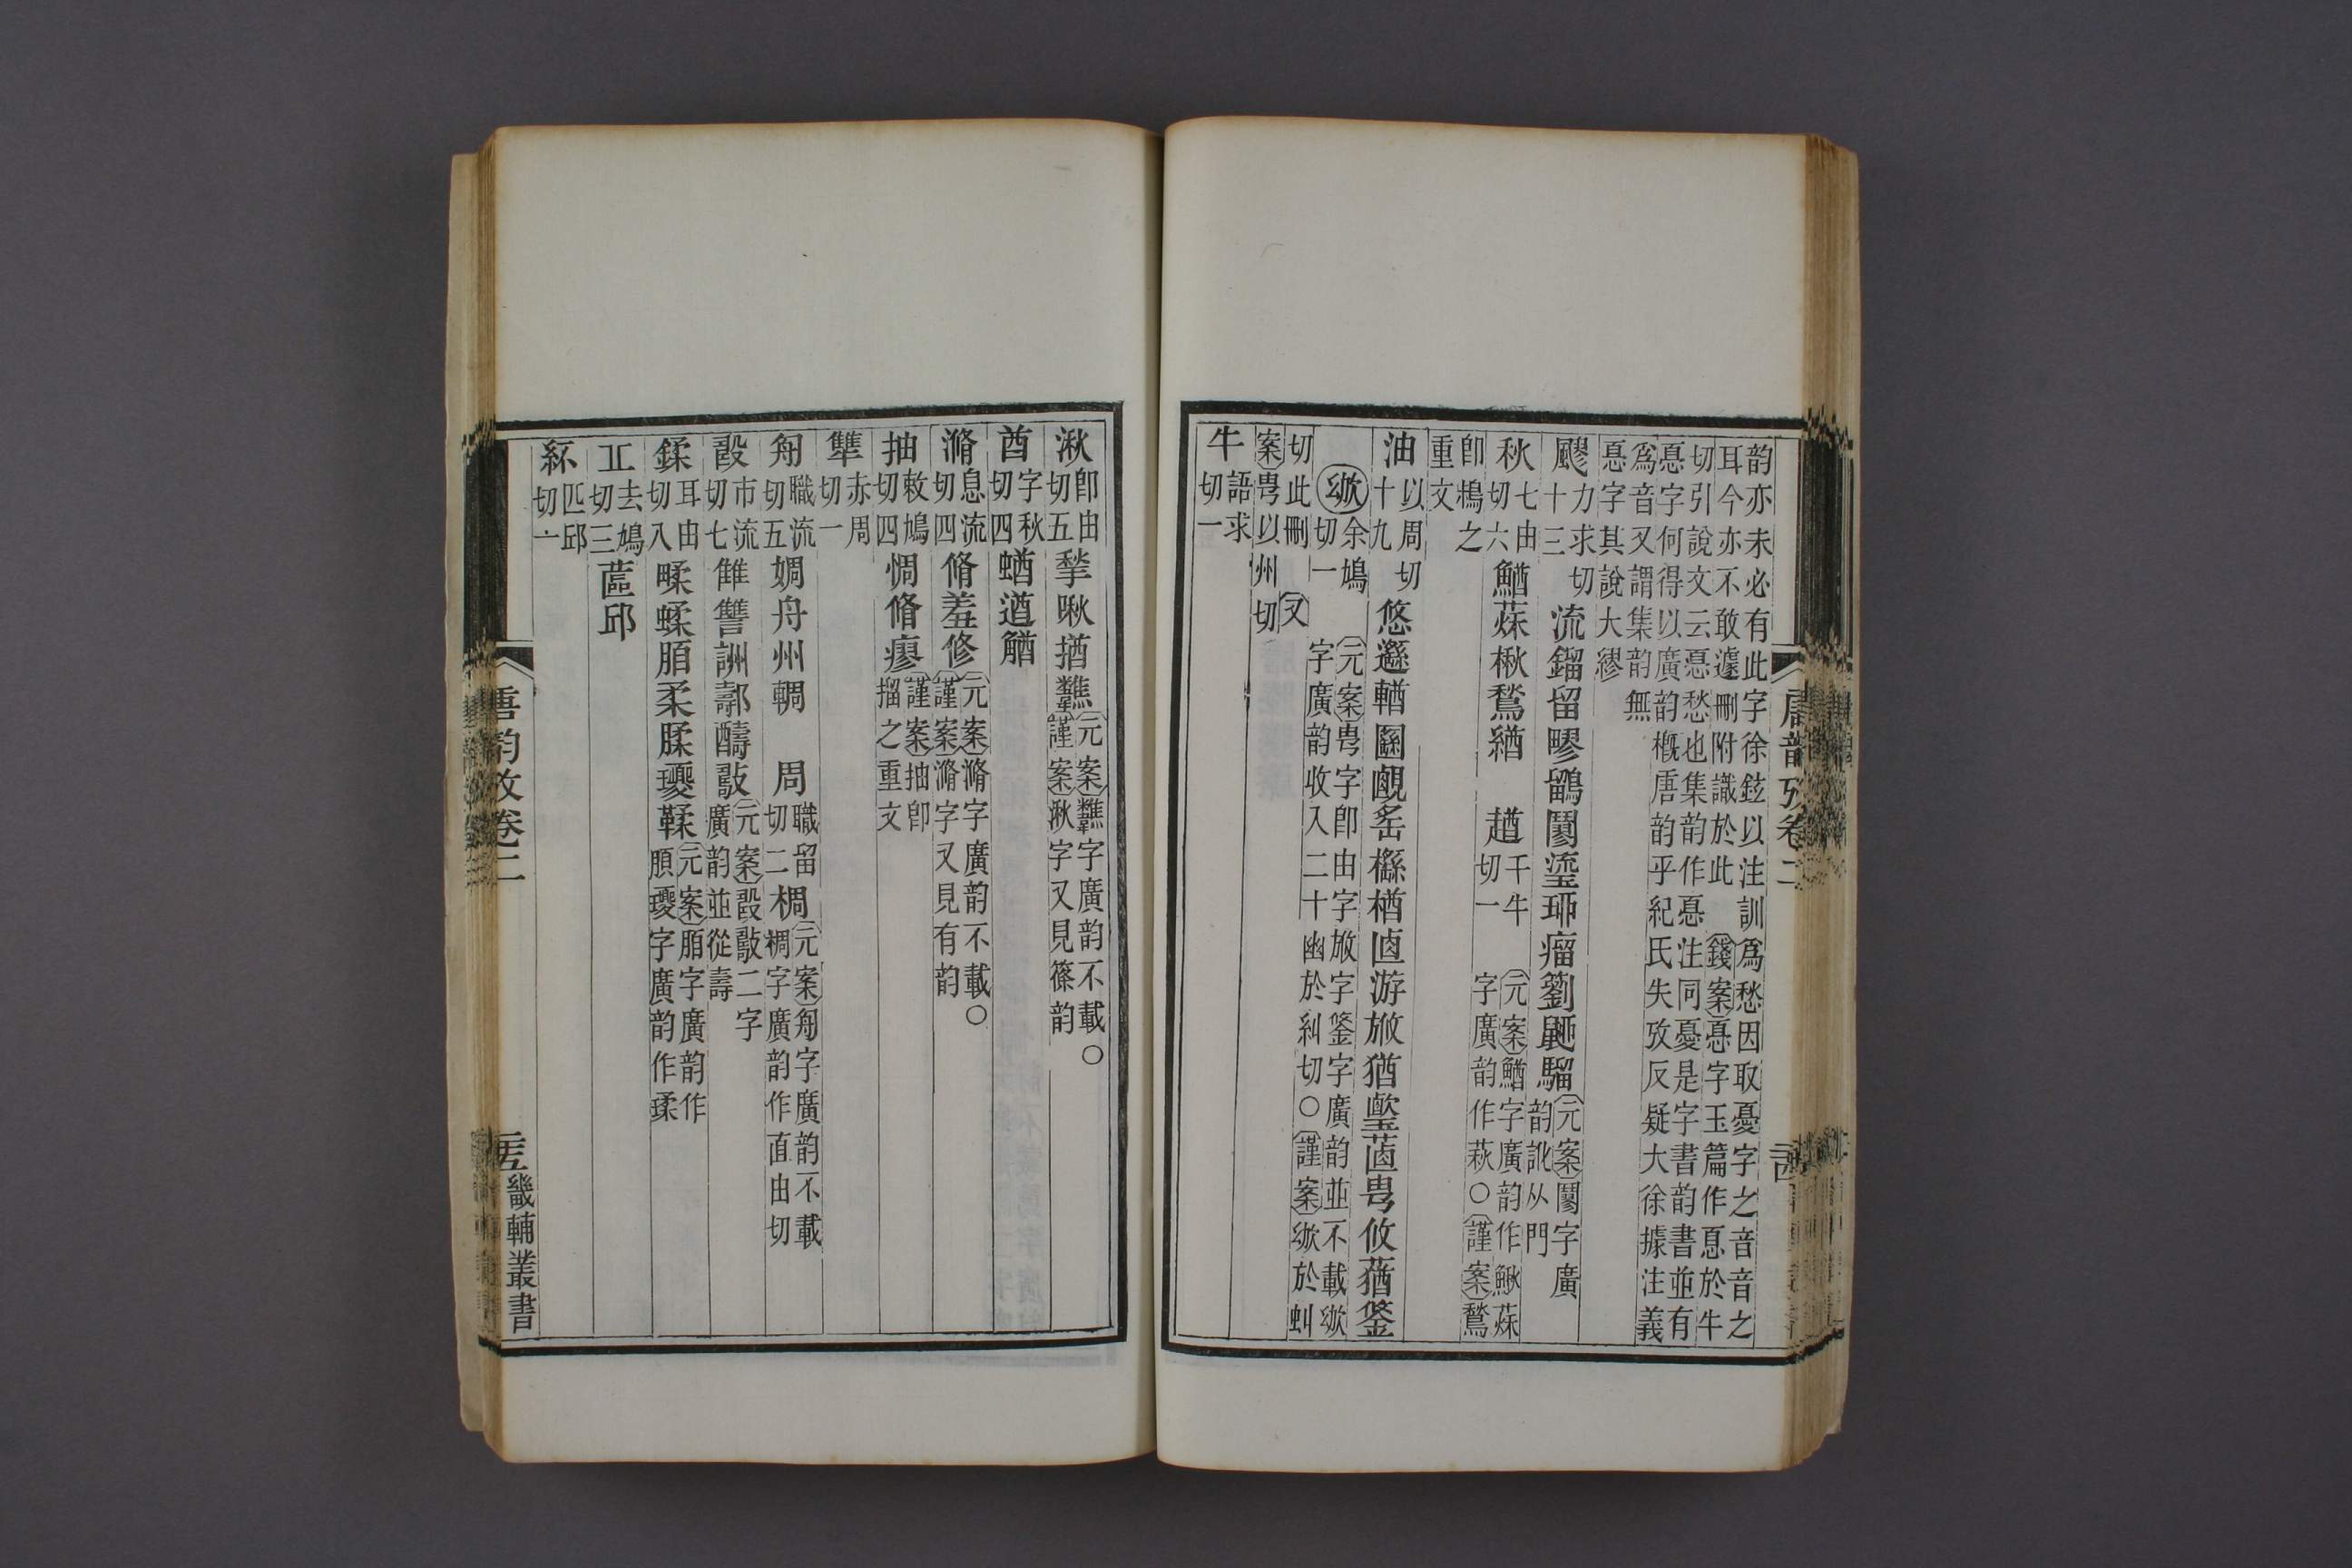 韵亦未必有此字徐鉉以注訓爲愁因取憂字之音音之
耳今亦不敢遽刪附識於此錢案惪字玉篇作惪於牛
切引說文云惪愁也集韵作惪注同憂是字書韵書並有
惪字何得以廣韵槪唐韵乎紀氏失攷反疑大徐據注義
爲音又謂集韵無
惪字其說大繆
飂力求切十三流鎦留疁鶹𨷨瑬珋瘤籀𪕋騮元案𨷨字廣韵訛从門
秋七由切六鰌蘇楸鶖緧 趥千牛切一元案鰌字廣韵作鰍蘇字廣韵作萩○謹案鶖
卽鶖之重文
油以周切十九悠遊輶圝䚃䍃櫾楢卣游斿猶𤯌蓲甹攸蕕䥝
㰲余鳩切一元案甹字卽由字斿字䥝字廣韵並不載㰲字廣韵收入二十幽於糾切○謹案㰲於虯
切此刪又
案甹以州切
牛語求切一
唐韵攷卷二
湫卽由切五揫啾揂𪚰元案𪚰字廣韵不載○謹案湫字又見篠韵
酋字秋切四蝤遒䠓
滫息流切四脩羞修元案滫字廣韵不載○謹案滫字又見有韵
抽敕鳩切四惆脩瘳謹案抽卽㨨之重文
犫赤周切一
舟職流切五婤舟州輖 周職留切二椆元案舟字廣韵不載裯字廣韵作直由切
㲄市流切七雔讐詶𨞪醻敽元案㲄敽二字廣韵並從壽
鍒耳由切八𤲸蝚脜柔腬瓇鞣元案脜字廣韵作䐓瓇字廣韵作瑈
丘去鳩切三蓲邱
紑匹邱切一
唐韵攷卷二
畿輔叢書